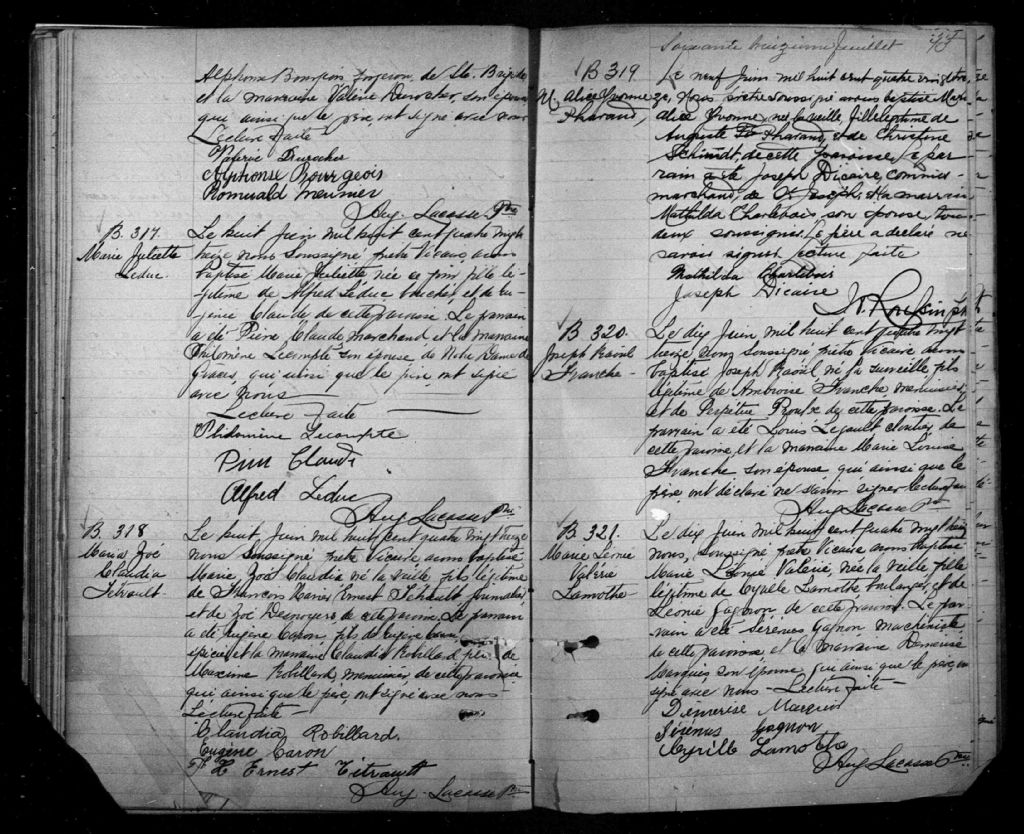 Alphonse Bourgeois, forgeron, de Ste. Brigide
et la marraine Valérie Durocher, son épouse
qui ainsi que le père, ont signé avec nous
Lecture faite
Valérie Durocher
Alphonse Bourgeois
Romuald Meunier
Aug. Lacasse Ptre
B. 317.
Marie Juliette
Leduc.
Le huit Juin mil huit cent quatre vingt
treize nous soussigné prêtre Vicaire avons
baptisé Marie Juliette née ce jour fille lé-
gitime de Alfred Leduc boucher et de Eu-
génie Claude de cette paroisse. Le parrain
a été Pierre Claude marchand et la marraine
Philomène Lecompte son épouse de Notre Dame de
Graces, qui ainsi que le père, ont signé
avec nous
Lecture faite
Philomène Lecompte
Claude
Alfred Leduc
Aug Lacasse Ptre
B. 318
Marie Zoé
Claudia
Tétrault.
Le huit Juin mil huit cent quatre vingt treize
nous soussigné prêtre Vicaire avons baptisé
Marie, Zoé Claudia née la veille fille légitime
de François Xavier Ernest Tétrault journalier
et de Zoé Desnoyers de cette paroisse. Le parrain
a été Eugène Caron fils de Eugène Caron
épicier et la marraine Claudia Robillard fille de
Maxime Robillard, menuisier de cette paroisse
qui ainsi que le père, ont signé avec nous
Lecture faite
Claudia Robillard.
Eugène Caron
F. X Ernest Tétrault
Aug. Lacasse Ptre
Soixante treizième feuillet
B 319
M. Alice Yvonne
Pharand,
Le neuf Juin mil huit cent quatre vingt trei-
ze, Nous prêtre soussigné avons baptisé Marie
Alice Yvonne, née la veille, fille légitime de
Auguste Pharand, et de Christine
Schmidt, de cette paroisse. Le par
rain a été Joseph Dicaire, commis-
marchand, de St Joseph, et la marraine
Mathilda Charlebois, son épouse, tous
deux soussignés. Le père a déclaré ne
savoir signer. Lecture faite
Mathilda Charlebois
Joseph Dicaire
B 320.
Joseph Raoul
Franche
Le dix Juin mil huit cent quatre vingt
treize Nous soussigné prêtre Vicaire avons
baptisé Joseph Raoul né la surveille fils
légitime de Ambroise Franche menuisier
et de Perpétue Proulx de cette paroisse. Le
parrain a été Louis Legault cloutier de
cette paroisse, et la marraine Marie Louise
Franche son épouse qui ainsi que le
père ont déclaré ne savoir signer lecture faite
Aug Lacasse Ptre
B. 321.
Marie Leonie
Valérie
Lamothe
Le dix Juin mil huit cent quatre vingt treize
nous, soussigné prêtre Vicaire avons baptisé
Marie Léonie Valérie, née la veille fille
légitime de Cyrille Lamothe boulanger, et de
Léonie Gagnon de cette paroisse. Le par-
rain a été Sérénus Gagnon machiniste
de cette paroisse et la marraine Démerise
Marquis son épouse qui ainsi que le père, ont
signé avec nous Lecture faite
Démerise Marquis
Sérénus Gagnon
Cyrille Lamothe
Aug Lacasse Ptre